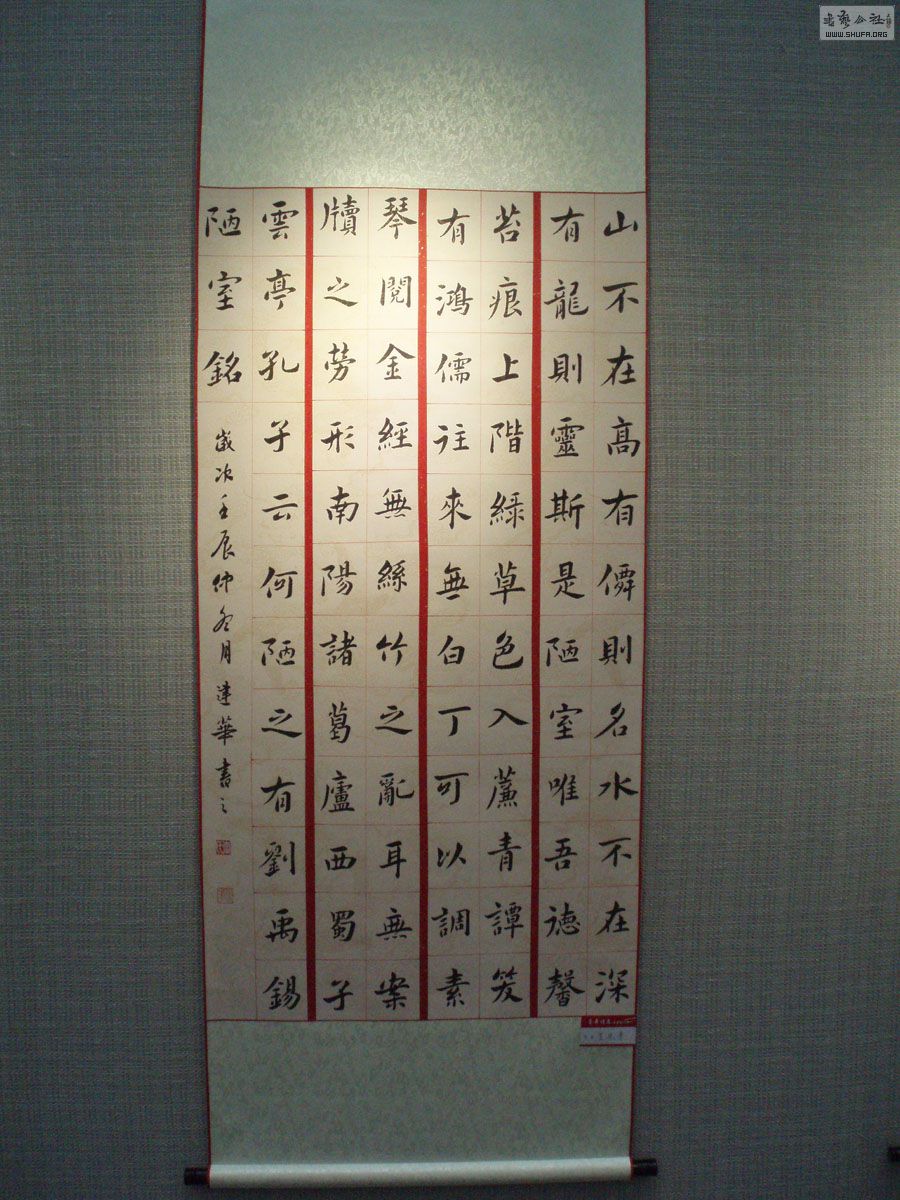 山不在高有僊則名水不在深
有龍則靈斯是陋室唯吾德馨
苔痕上階綠草色入薕青譚笑
有鴻儒往來無白丁可以調素
琴閱金經無絲竹之亂耳無案
牘之勞形南陽諸葛廬西蜀子
雲亭孔子云何陋之有劉禹錫
陋室銘
歲次壬辰仲冬月建華書之
WWW.SHUFA.ORG